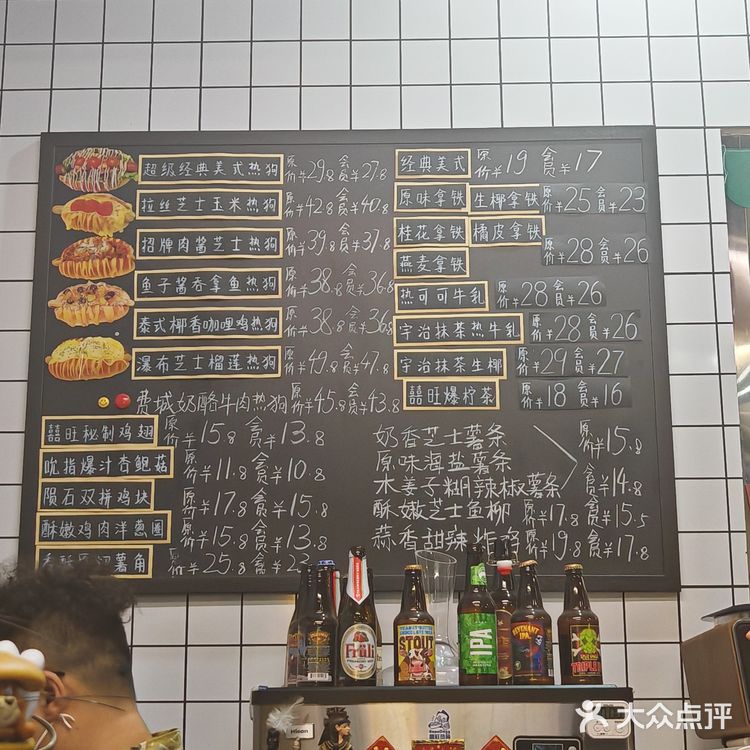 超级经典美式热狗 原价¥29.8 会员¥27.8
拉丝芝士玉米热狗 原价¥42.8 会员¥40.8
招牌肉酱芝士热狗 原价¥39.8 会员¥37.8
鱼子酱吞拿鱼热狗 原价¥38.8 会员¥36.8
泰式椰香咖喱鸡热狗 原价¥38.8 会员¥36.8
瀑布芝士榴莲热狗 原价¥49.8 会员¥47.8
费城奶酪牛肉热狗 原价¥45.8 会员¥43.8
囍旺秘制鸡翅 原价¥15.8 会员¥13.8
吮指爆汁杏鲍菇 原价¥11.8 会员¥10.8
陨石双拼鸡块 原价¥17.8 会员¥15.8
酥嫩鸡肉洋葱圈 原价¥15.8 会员¥13.8
薯角 原价¥25.8
经典美式 原价¥19 会员¥17
原味拿铁 生椰拿铁 原价¥25 会员¥23
桂花拿铁 橘皮拿铁
燕麦拿铁 原价¥28 会员¥26
热可可牛乳 原价¥28 会员¥26
宇治抹茶热牛乳 原价¥28 会员¥26
宇治抹茶生椰 原价¥29 会员¥27
囍旺爆柠茶 原价¥18 会员¥16
奶香芝士薯条
原味海盐薯条 原价¥15.8
木姜子糊辣椒薯条 会员¥14.8
酥嫩芝士鱼柳 原价¥17.8 会员¥15.5
蒜香甜辣炸鸡 原价¥19.8 会员¥17.8
Früli
STOUT
IPA
REVENANT IPA
Hisense
大众点评